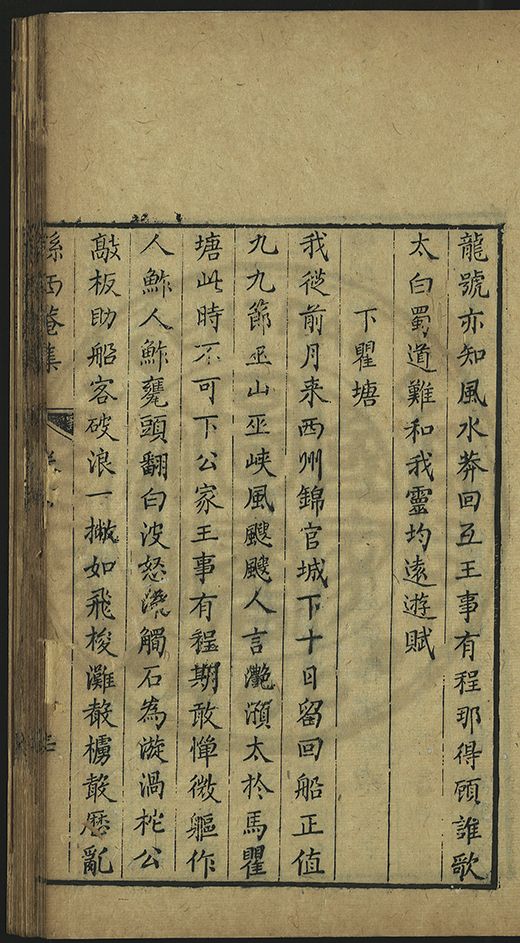 龍號亦知風水莽回互王事有程那得顧誰歌
太白蜀道難和我靈均遠遊賦
下瞿塘
我從前月來西州錦官城下十日留回船正值
九九節巫山巫峽風颼颼人言灩澦大於馬瞿
塘此時不可下公家王事有程期敢憚微軀作
人鮓人鮓甕頭翻白波怒流觸石為漩渦柁公
敲板助船客破浪一撇如飛梭灘聲櫓聲歷亂
孫西菴集